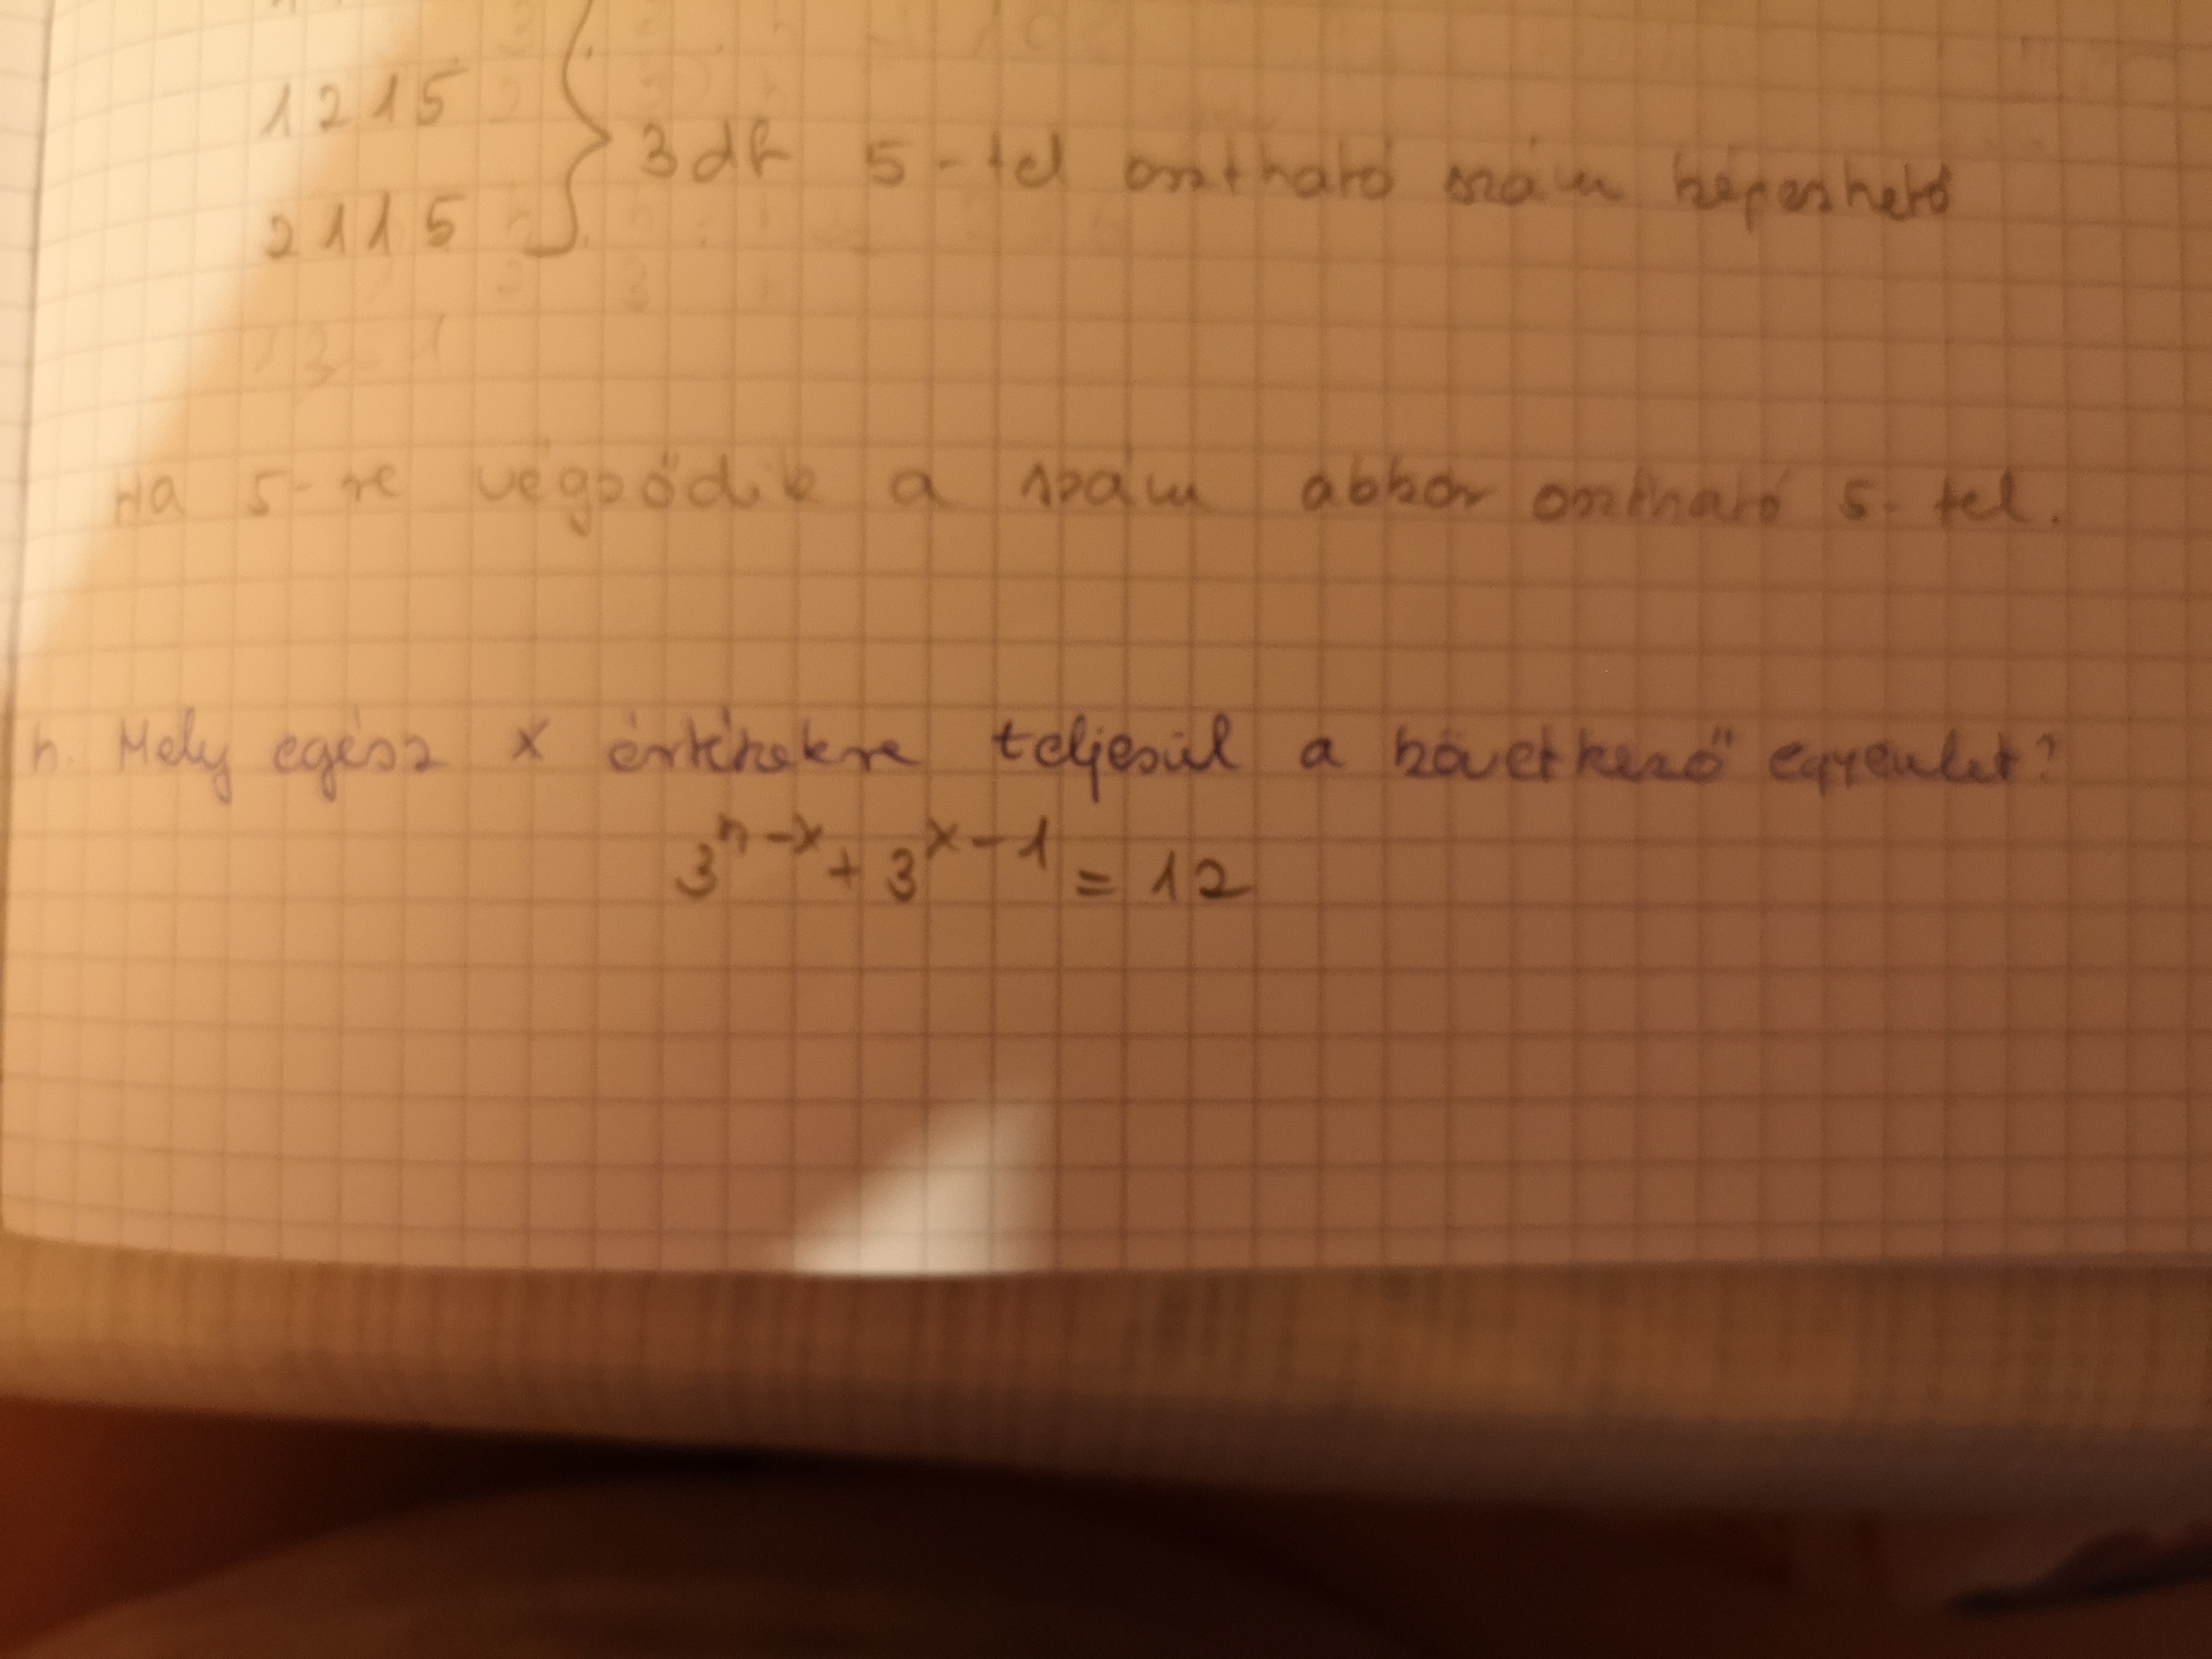 1215
2115
3 db 5-tel osztható szám képezhető
Ha 5-re végződik a szám akkor osztható 5-tel.
4. Mely egész x értékekre teljesül a következő egyenlet?
3^{4-x} + 3^{x-1} = 12